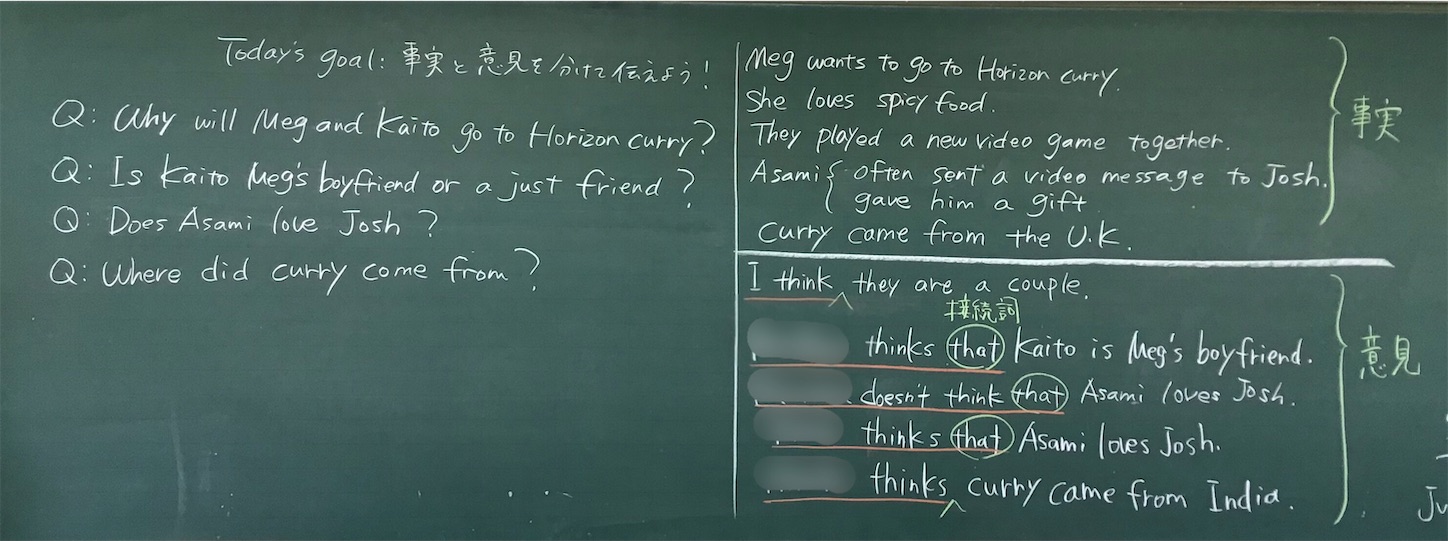 Today's goal: 事実と意見を分けて伝えよう!
Q: Why will Meg and Kaito go to Horizon curry?
Q: Is Kaito Meg's boyfriend or a just friend?
Q: Does Asami love Josh?
Q: Where did curry come from?
Meg wants to go to Horizon curry.
She loves spicy food.
They played a new video game together.
Asami { often sent a video message to Josh.
gave him a gift
Curry came from the U.K.
事実
I think they are a couple.
接続詞
thinks that Kaito is Meg's boyfriend.
doesn't think that Asami loves Josh.
thinks that Asami loves Josh.
thinks curry came from India.
意見